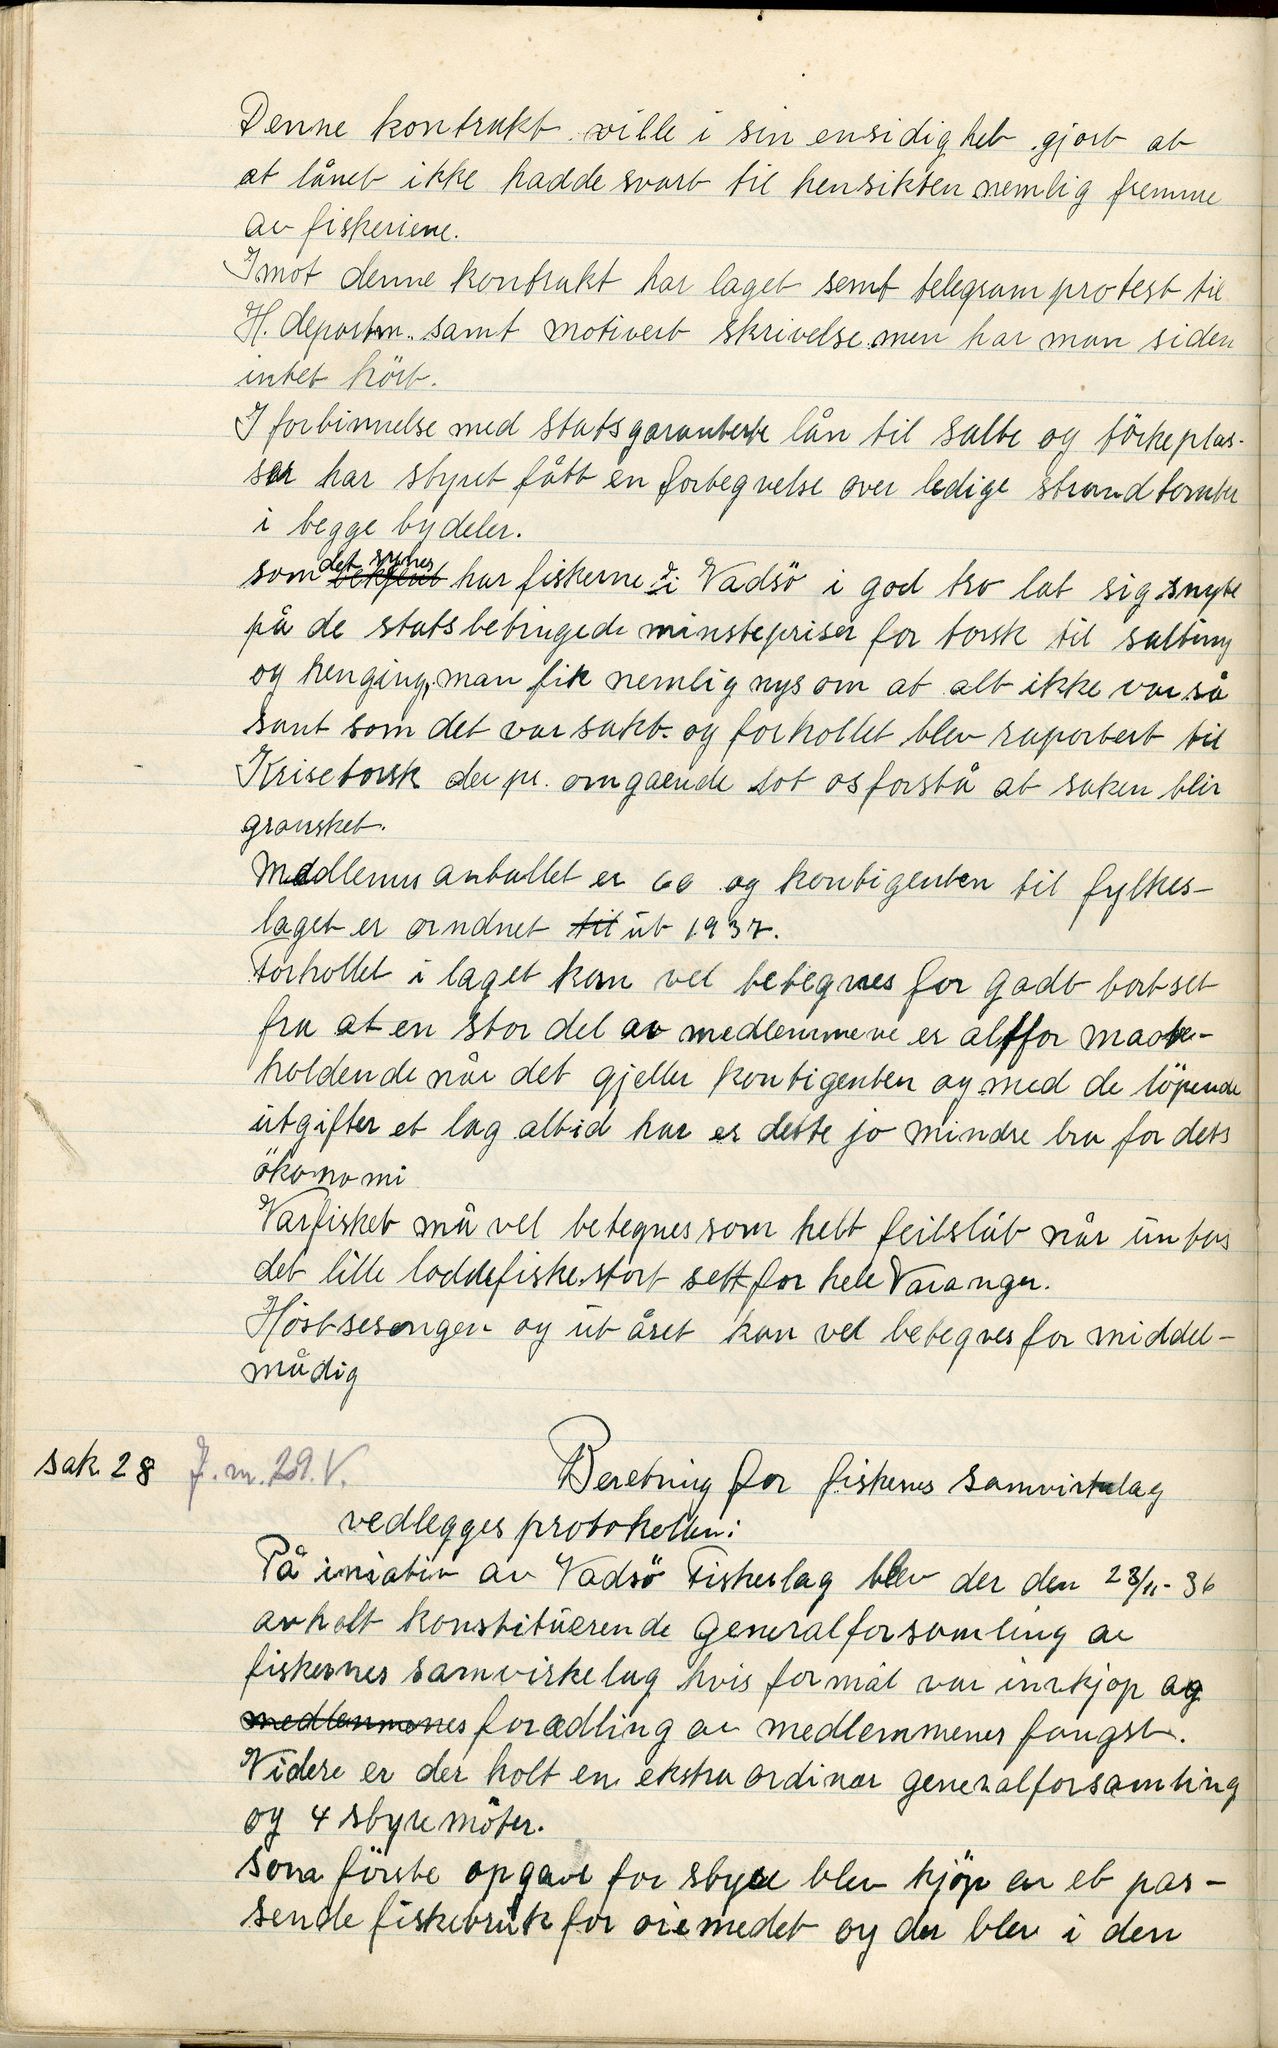 Denne kontrakt ville i sin ensidighet gjort at
at lånet ikke hadde svart til hensikten nemlig fremme
av fiskeriene.
Imot denne kontrakt har laget sent telegram protest til
H. departm. samt motivert skrivelse men har man siden
intet hört.
I forbinnelse med statsgaranterte lån til salte og törkeplas-
ser har styret fått en fortegnelse over ledige strandtomter
i begge bydeler.
som det synes har fiskerne i Vadsö i god tro lat sig snyte
på de statsbetingede minstepriser for torsk til salting
og henging, man fik nemlig nys om at alt ikke var så
sant som det var sakt. og forhollet blev raportert til
Krisetorsk der pr. omgående lot os forstå at saken blir
gransket.
Medlemsantallet er 60 og kontigenten til fylkes-
laget er orndnet til ut 1937.
Forhollet i laget kan vel betegnes for godt bortset
fra at en stor del av medlemmene er altfor mate-
holdende når det gjeller kontigenten og med de löpende
utgifter et lag altid har er dette jo mindre bra for dets
ökonomi
Varfisket må vel betegnes som helt feilslåt når untas
det lille loddefiske stort sett for hele Varanger.
Höstsesongen og ut året kan vel betegnes for middel-
mådig
sak 28 J. nr. 29. V. Beretning for fiskenes samvirkelag
vedlegges protokollen:
På iniativ av Vadsö Fiskerlag blev der den 23/11-36
avholt konstituerende generalforsamling av
fiskernes samvirkelag hvis formål var innkjöp og
medlemmenes foredling av medlemmenes fangst.
Videre er der holt en ekstra ordinær generalforsamling
og 4 styremöter.
som förste opgave for styre blev kjöp av et pas-
sende fiskebruk for öiemedet og der blev i den